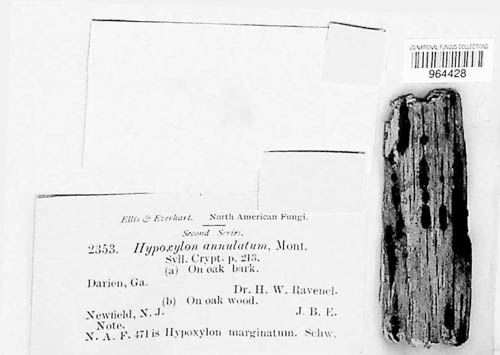 US NATIONAL FUNGUS COLLECTIONS
964428
Ellis & Everhart. North American Fungi.
Second Series.
2353. Hypoxylon annulatum, Mont.
Syll. Crypt. p. 213.
(a) On oak bark.
Darien, Ga. Dr. H. W. Ravenel.
(b) On oak wood.
Newfield, N. J. J. B. E.
Note.
N. A. F. 471 is Hypoxylon marginatum. Schw.